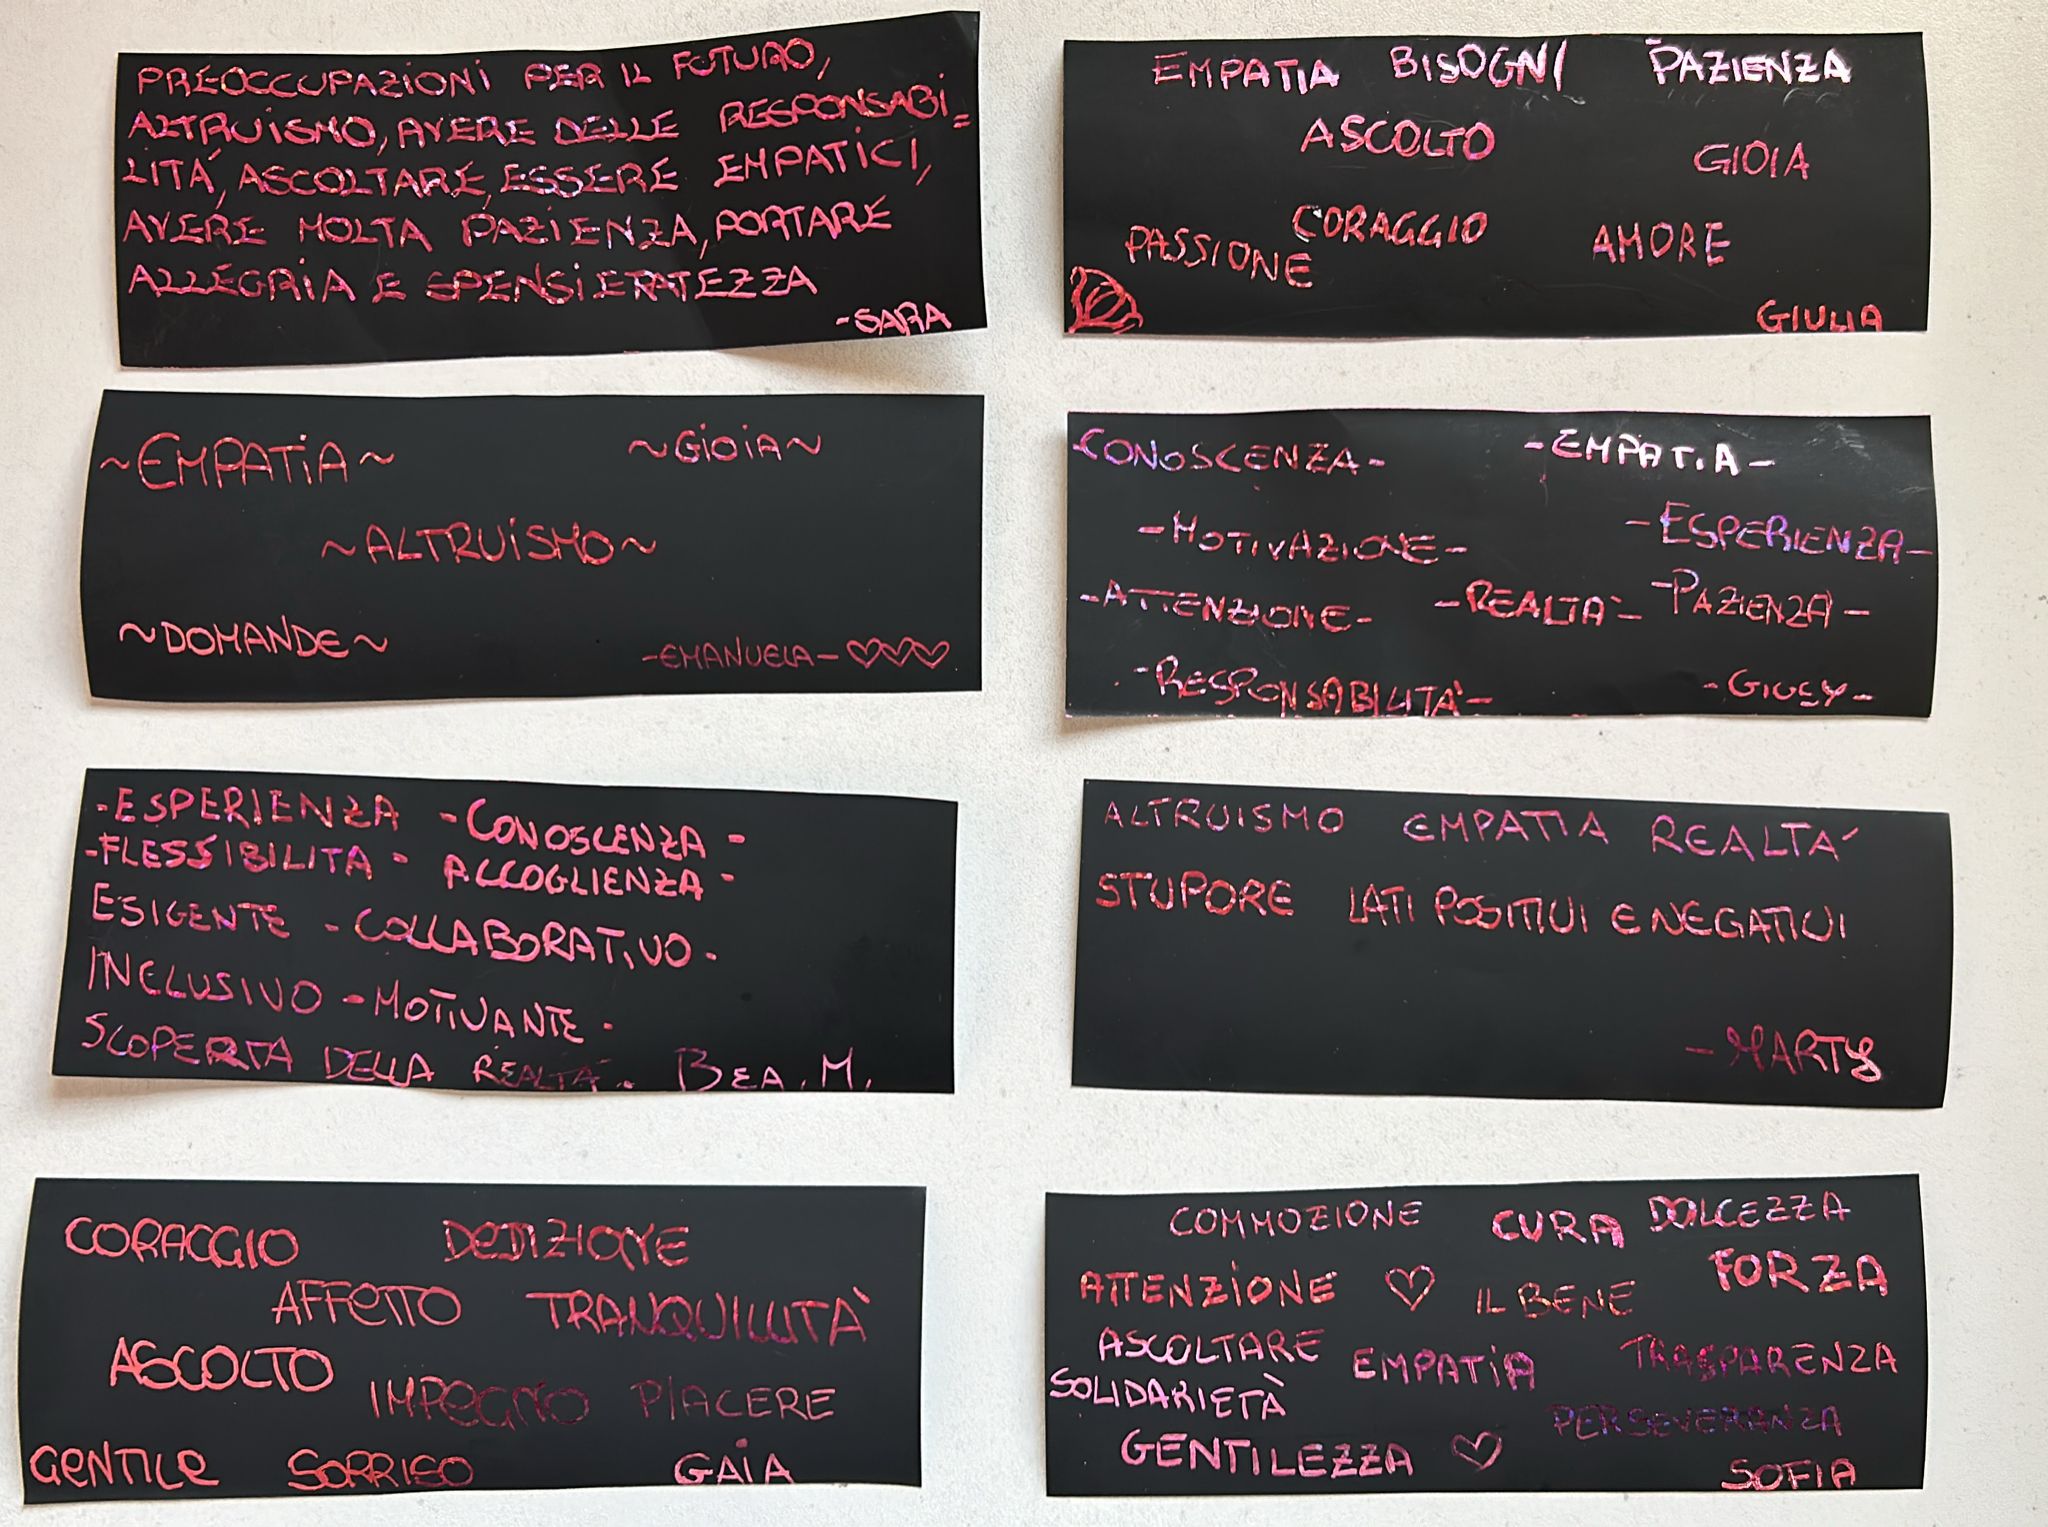 PREOCCUPAZIONI PER IL FUTURO,
ALTRUISMO, AVERE DELLE RESPONSABI=
LITÁ, ASCOLTARE, ESSERE EMPATICI,
AVERE MOLTA PAZIENZA, PORTARE
ALLEGRIA E SPENSIERATEZZA
-SARA
EMPATIA BISOGNI PAZIENZA
ASCOLTO GIOIA
PASSIONE CORAGGIO AMORE
GIULIA
~EMPATIA~ ~GIOIA~
~ALTRUISMO~
~DOMANDE~ -EMANUELA- ♡♡♡
-CONOSCENZA- -EMPATIA-
-MOTIVAZIONE- -ESPERIENZA-
-ATTENZIONE- -REALTA'- -PAZIENZA-
-RESPONSABILITA'- -GIUSY-
-ESPERIENZA -CONOSCENZA-
-FLESSIBILITA- ACCOGLIENZA-
ESIGENTE -COLLABORATIVO-
INCLUSIVO -MOTIVANTE-
SCOPERTA DELLA REALTA'. BEA. M.
ALTRUISMO EMPATIA REALTA'
STUPORE LATI POSITIVI E NEGATIVI
-MARTY
CORAGGIO DEDIZIONE
AFFETTO TRANQUILLITÀ
ASCOLTO IMPEGNO PIACERE
GENTILE SORRISO GAIA
COMMOZIONE CURA DOLCEZZA
ATTENZIONE ♡ IL BENE FORZA
ASCOLTARE EMPATIA TRASPARENZA
SOLIDARIETÀ PERSEVERANZA
GENTILEZZA ♡ SOFIA